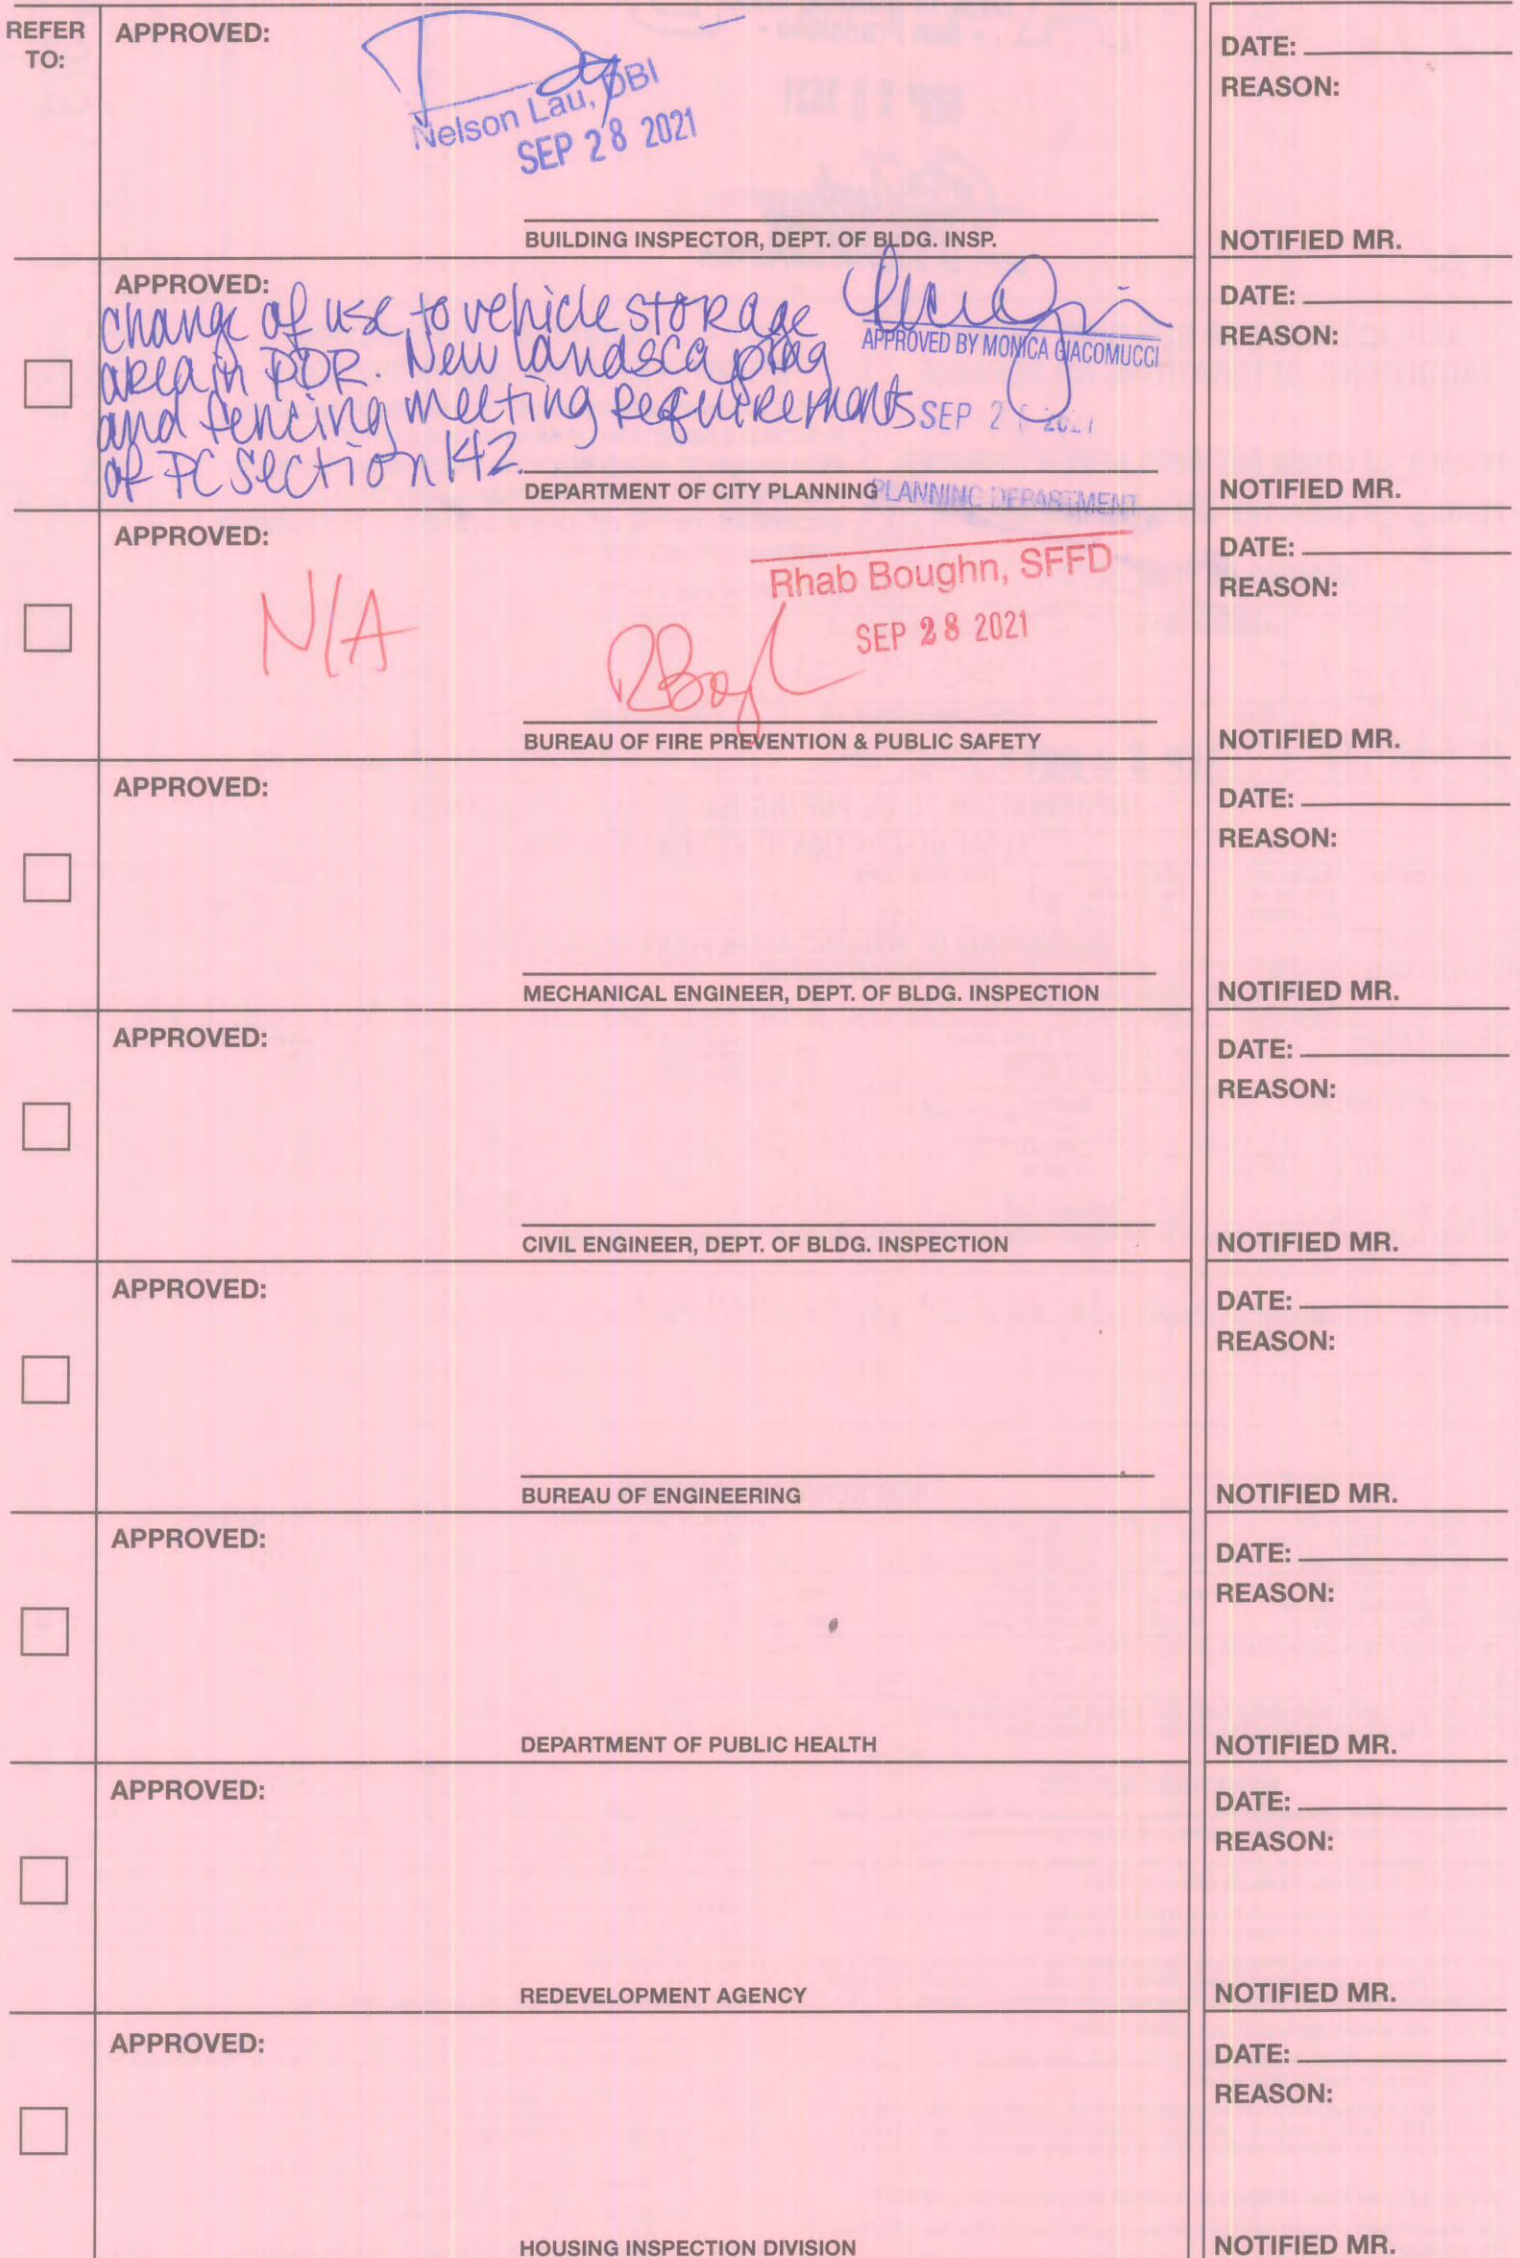 REFER
TO:
APPROVED:
Nelson Lau, DBI
SEP 28 2021
BUILDING INSPECTOR, DEPT. OF BLDG. INSP.
DATE:
REASON:
NOTIFIED MR.
APPROVED:
change of use to vehicle storage
area in PDR. New landscaping
and fencing meeting requirements
of PC Section 142.
APPROVED BY MONICA GIACOMUCCI
SEP 2 2021
DEPARTMENT OF CITY PLANNING
PLANNING DEPARTMENT
DATE:
REASON:
NOTIFIED MR.
APPROVED:
N/A
Rhab Boughn, SFFD
SEP 28 2021
BUREAU OF FIRE PREVENTION & PUBLIC SAFETY
DATE:
REASON:
NOTIFIED MR.
APPROVED:
MECHANICAL ENGINEER, DEPT. OF BLDG. INSPECTION
DATE:
REASON:
NOTIFIED MR.
APPROVED:
CIVIL ENGINEER, DEPT. OF BLDG. INSPECTION
DATE:
REASON:
NOTIFIED MR.
APPROVED:
BUREAU OF ENGINEERING
DATE:
REASON:
NOTIFIED MR.
APPROVED:
DEPARTMENT OF PUBLIC HEALTH
DATE:
REASON:
NOTIFIED MR.
APPROVED:
REDEVELOPMENT AGENCY
DATE:
REASON:
NOTIFIED MR.
APPROVED:
HOUSING INSPECTION DIVISION
DATE:
REASON:
NOTIFIED MR.